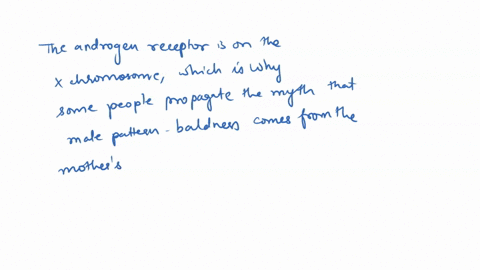 The androgen receptor is on the
x chromosome, which is why
some people propagate the myth that
male pattern - baldness comes from the
mother's